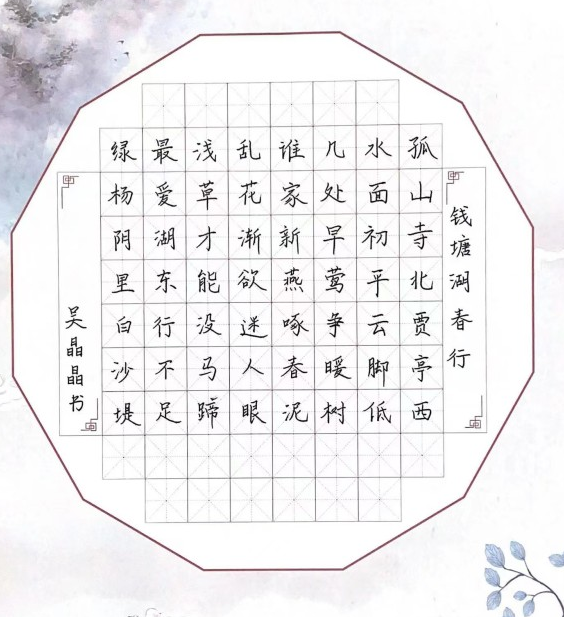 钱塘湖春行
孤山寺北贾亭西
水面初平云脚低
几处早莺争暖树
谁家新燕啄春泥
乱花渐欲迷人眼
浅草才能没马蹄
最爱湖东行不足
绿杨阴里白沙堤
吴晶晶书